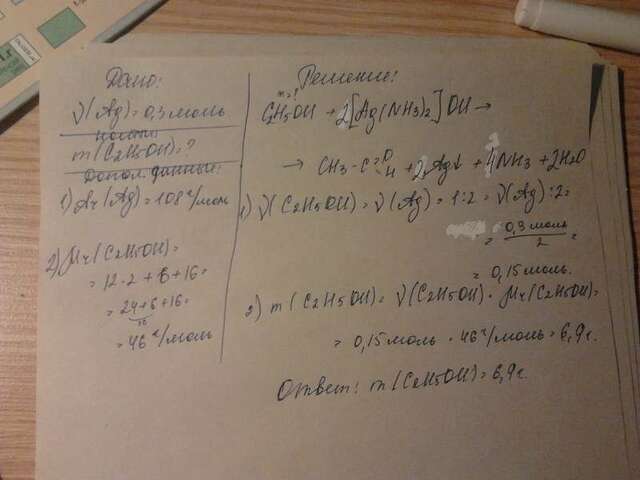 Дано:
ν(Ag)=0,3 моль
Найти:
m(C2H5OH)=?
Допол. данные:
1) Ar(Ag)=108 г/моль
2) Mr(C2H5OH)=
=12·2+6+16=
=24+6+16=
=46 г/моль
Решение:
m=?
C2H5OH + 2[Ag(NH3)2]OH →
→ CH3-C=O H + 2Ag↓ + 4NH3 + 2H2O
1) ν(C2H5OH) = ν(Ag) = 1:2 = ν(Ag):2=
= 0,3 моль / 2 =
= 0,15 моль.
2) m(C2H5OH) = ν(C2H5OH) · Mr(C2H5OH)=
= 0,15 моль · 46 г/моль = 6,9 г.
Ответ: m(C2H5OH) = 6,9 г.